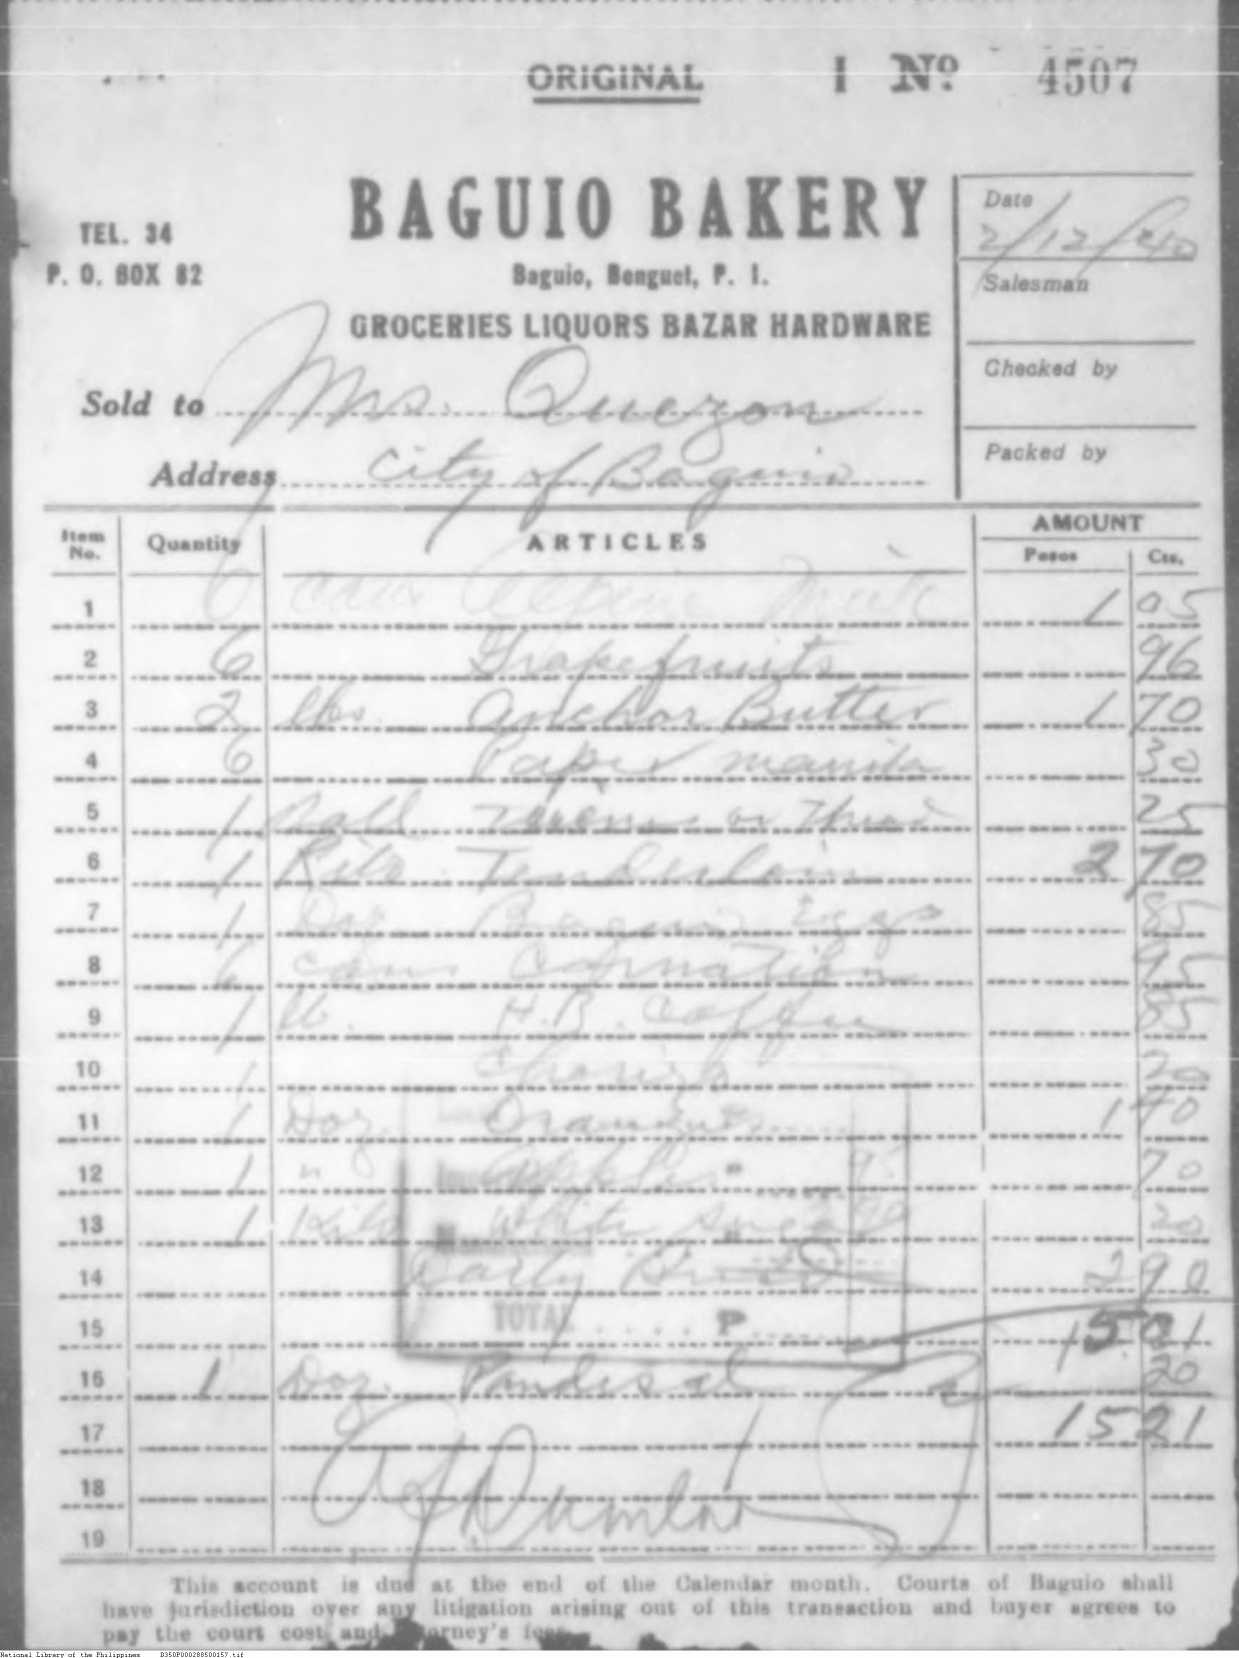 ORIGINAL
I No 4507
BAGUIO BAKERY
TEL. 34
P. O. BOX 82
Baguio, Benguet, P. I.
GROCERIES LIQUORS BAZAR HARDWARE
Date
2/12/40
Salesman
Checked by
Packed by
Sold to Mrs. Quezon
Address City of Baguio
Item No. Quantity ARTICLES AMOUNT Pesos Cts.
1 6 cans Alpine Milk 1 05
2 6 Grapefruits 96
3 2 lbs. Anchor Butter 1 70
4 6 Paper manila 30
5 1 Ball or 25
6 1 Kilo Tenderloin 2 70
7 1 Doz Baguio Eggs 85
8 6 cans Carnation 95
9 1 lb. H.B. Coffee 85
10 1 20
11 1 Doz. Oranges 1 40
12 1 " Apples 70
13 1 Kilo White Sugar 20
14 Early 2 90
15 15 01
TOTAL P
16 1 Doz. Pandesal 20
17 15 21
18
19
This account is due at the end of the Calendar month. Courts of Baguio shall
have jurisdiction over any litigation arising out of this transaction and buyer agrees to
pay the court cost and
National Library of the Philippines B350P000288500157.tif